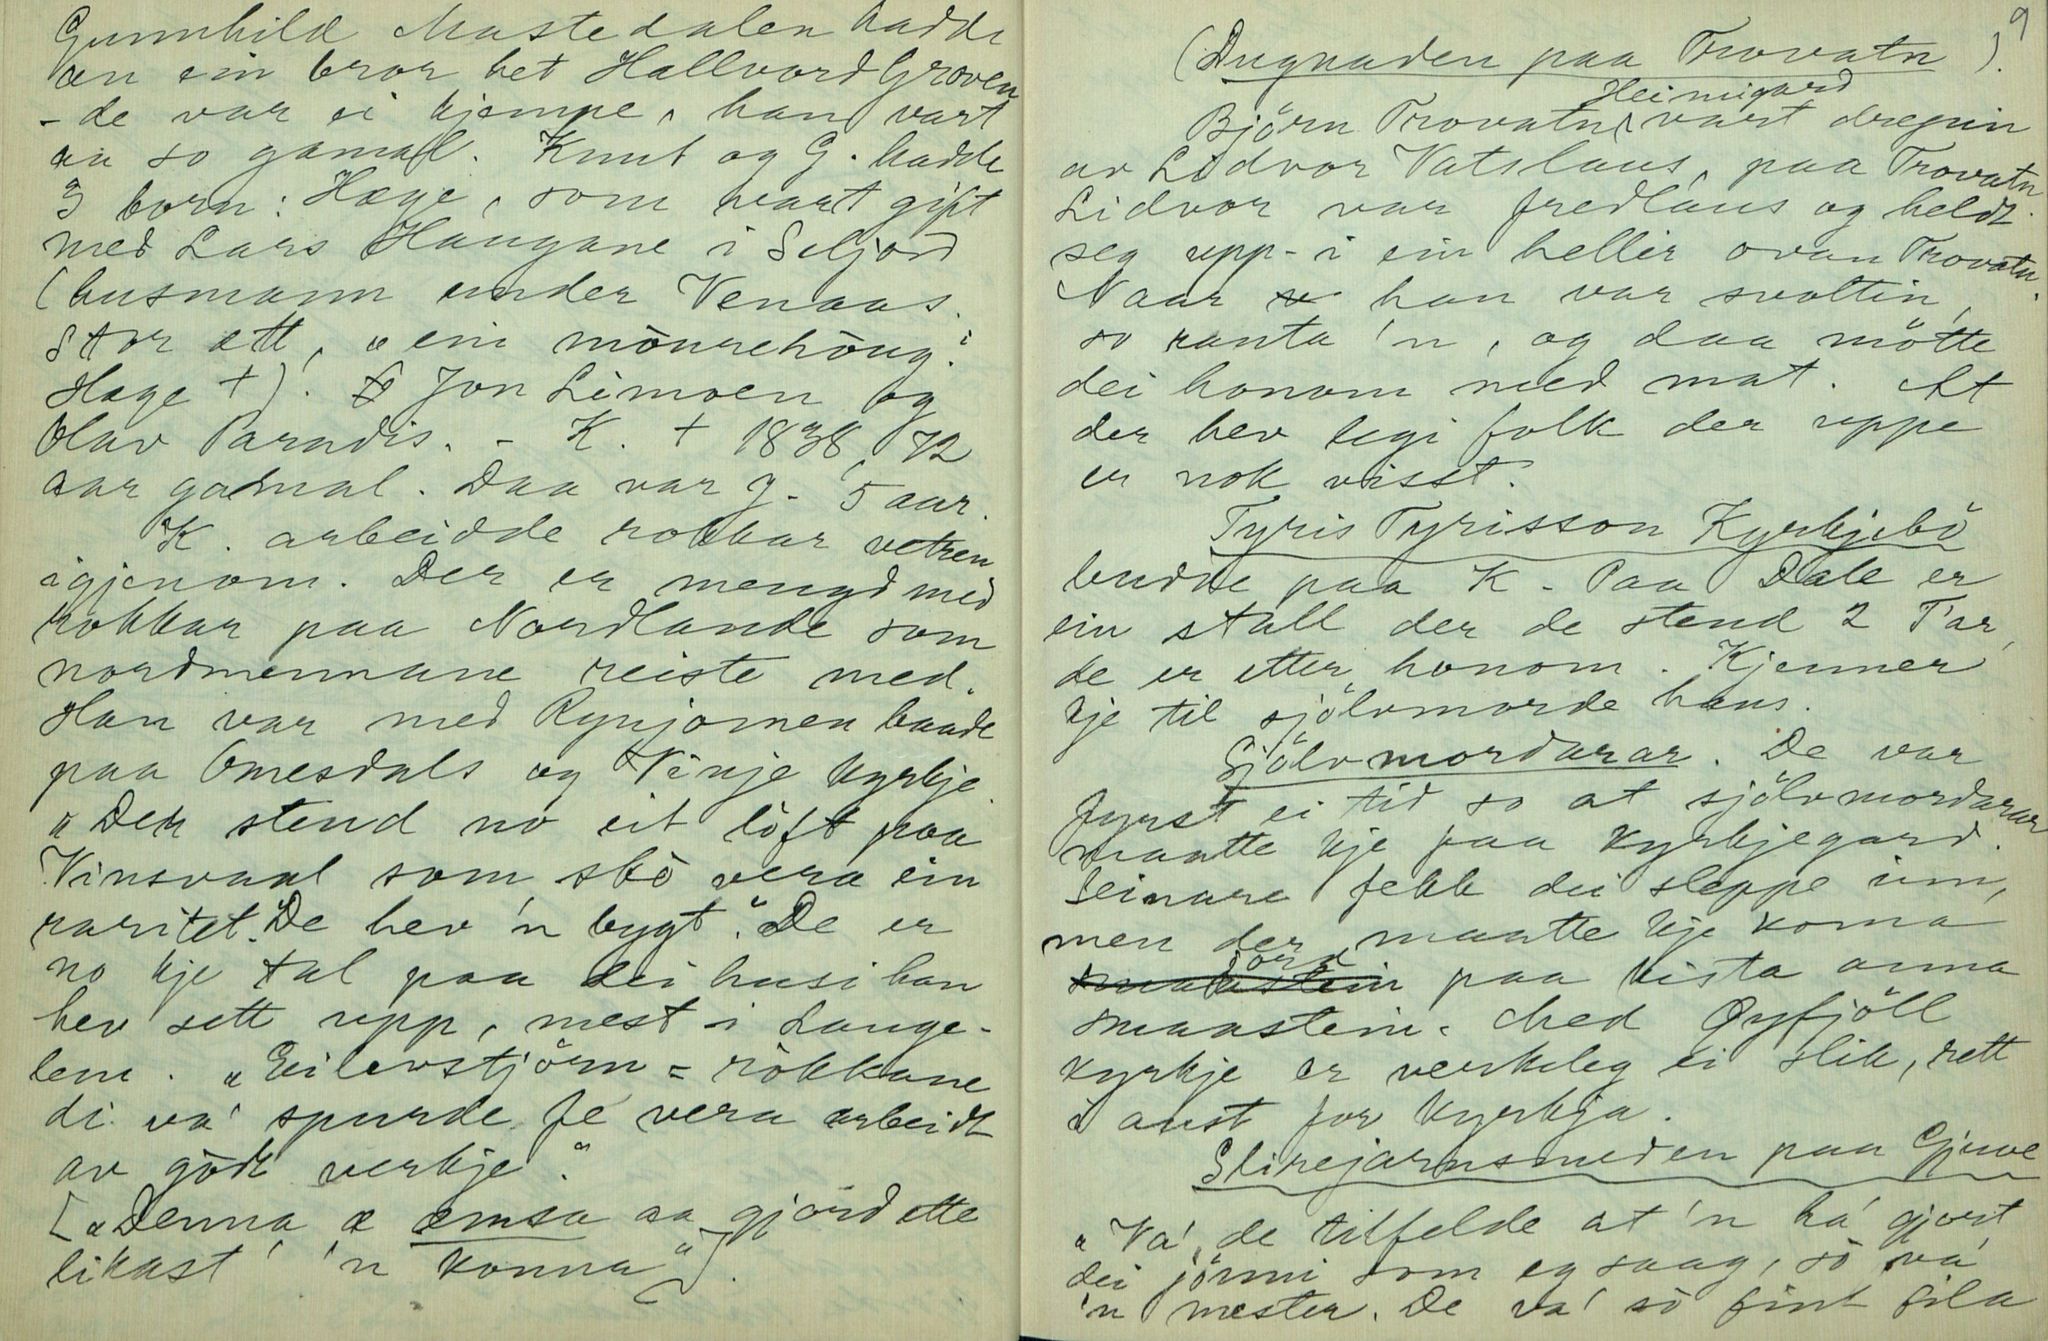 Gunnhild Mastedalen hadde
en ein bror het Hallvord Groven
- de var ei kjempe, han vart
so gamal. Knut og G. hadde
3 born: Hæge, som vart gift
med Lars Haugane i Seljord
(husmann under Venaas.
Stor ætt, "ein mònrehòug".
Hæge +). Jon Limoen og
Olav Paradis. - K. + 1838, 72
aar gamal. Daa var g. 5 aar.
K. arbeidde rokkar vetren
igjenom. Der er mengd med
rokkar paa Nordlande som
nordmennane reiste med.
Han var med Rynjomen baade
paa Omesdals og Vinje kyrkje.
"Der stend no eit loft paa
Vinsvaal som skò vera ein
raritet. De hev 'n bygt." De er
no kje tal paa dei husi han
hev sett upp, mest i Lauge-
lem. "Eilevstjörn-ròkkane
di va' spurde fe vera arbeidt
av gòdt verkje."
["Denna æ æmsa aa gjörd ette
likast' 'n konna"].
9
(Dugnaden paa Trovatn).
Björn Trovatn Heimigard vart drepin
av Lidvor Vatslaus, paa Trovatn.
Lidvor var fredlaus og heldt
seg upp i ein hellir ovan Trovatn.
Naar han var svoltin,
so ranta 'n, og daa mötte
dei honom med mat. At
der hev legi folk der uppe
er nok visst.
Tyris Tyrisson Kyrkjebö
budde paa K. Paa Dale er
ein stall der de stend 2 T'ar,
de er etter honom. Kjenner
kje til sjölvmorde hans.
Sjölvmordarar. De var
fyrst ei tid so at sjölvmordarar
maatte kje paa kyrkjegard.
Seinare fekk dei sleppe inn,
men der maatte kje koma
smaastein jord paa kista anna
smaastein. Med Øyfjöll
kyrkje er verkeleg ei slik, rett
i aust for kyrkja.
Slirejarnsmeden paa Gjuve
"Va' de tilfelde at 'n ha' gjort
dei jönni som eg saag, sò va'
'n mester. De va' sò fint fila